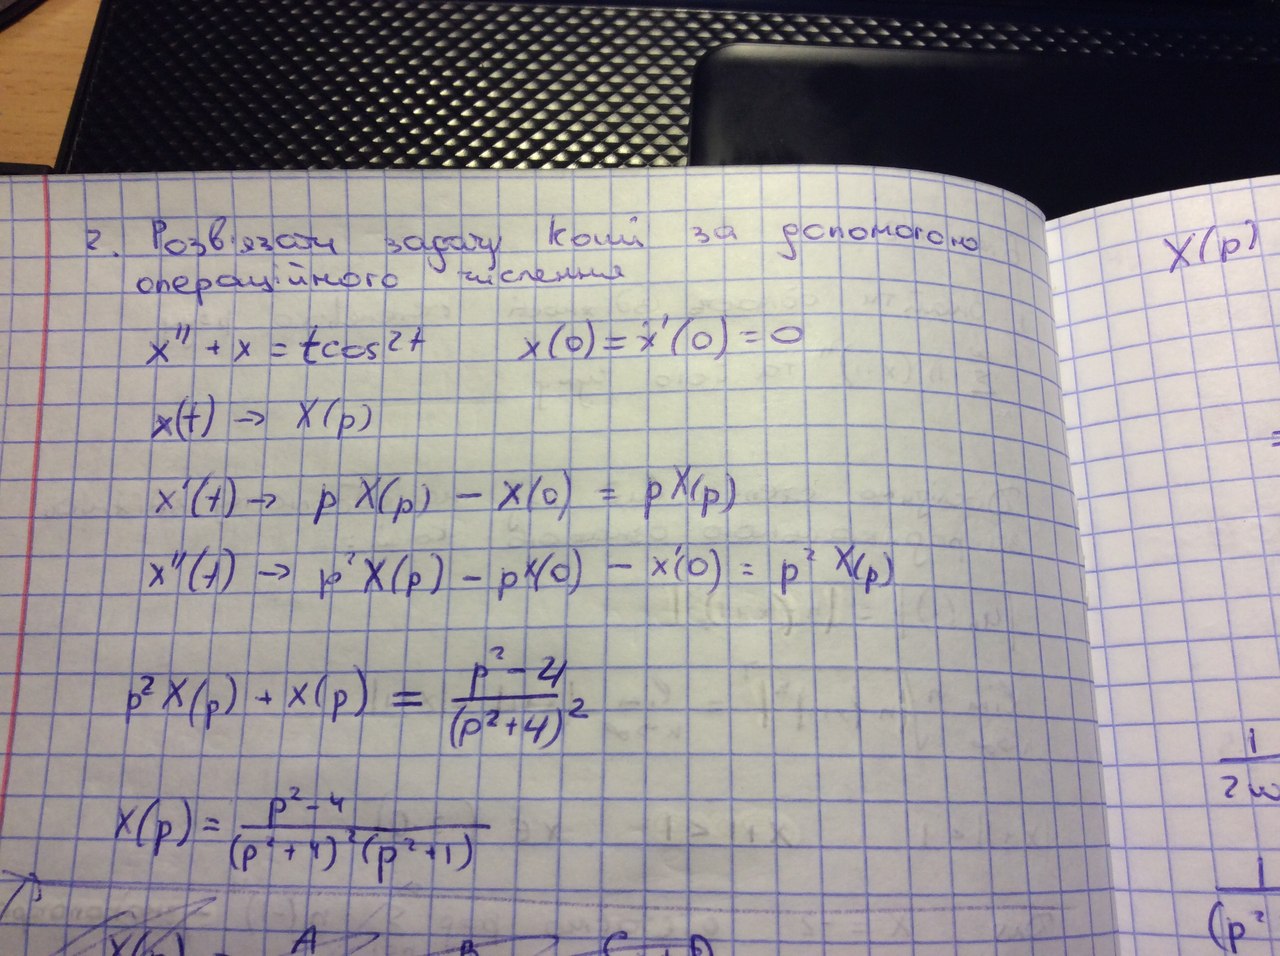 2. Розв'язати задачу Коші за допомогою
операційного числення
x'' + x = tcos2t x(0) = x'(0) = 0
x(t) → X(p)
x'(t) → p X(p) - x(0) = p X(p)
x''(t) → p² X(p) - px(0) - x'(0) = p² X(p)
p² X(p) + X(p) = (p² - 4) / (p² + 4)²
X(p) = (p² - 4) / (p² + 4)² (p² + 1)
X(p)
=
1
2ω
1
(p²
A
B